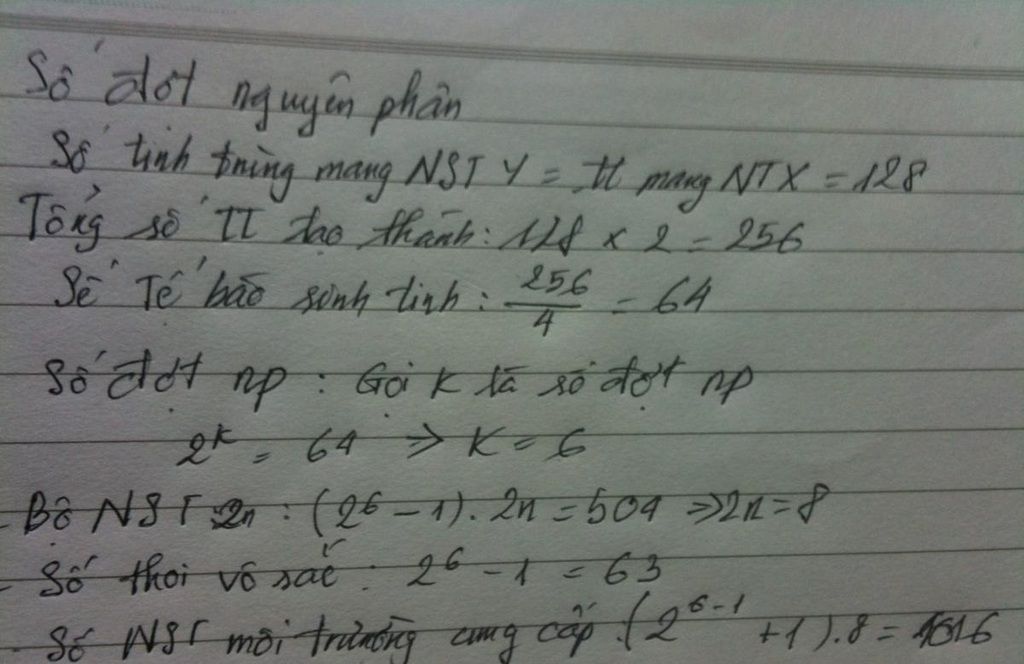 Số đợt nguyên phân
Số tinh trùng mang NST Y = tt mang NTX = 128
Tổng số TT tạo thành: 128 x 2 = 256
Số Tế bào sinh tinh: 256/4 = 64
Số đợt np : Gọi K là số đợt np
2^k = 64 ⇒ K = 6
- Bộ NST 2n : (2^6 - 1). 2n = 504 ⇒ 2n = 8
- Số thoi vô sắc: 2^6 - 1 = 63
- Số NST môi trường cung cấp (2^6-1 + 1).8 = 1016